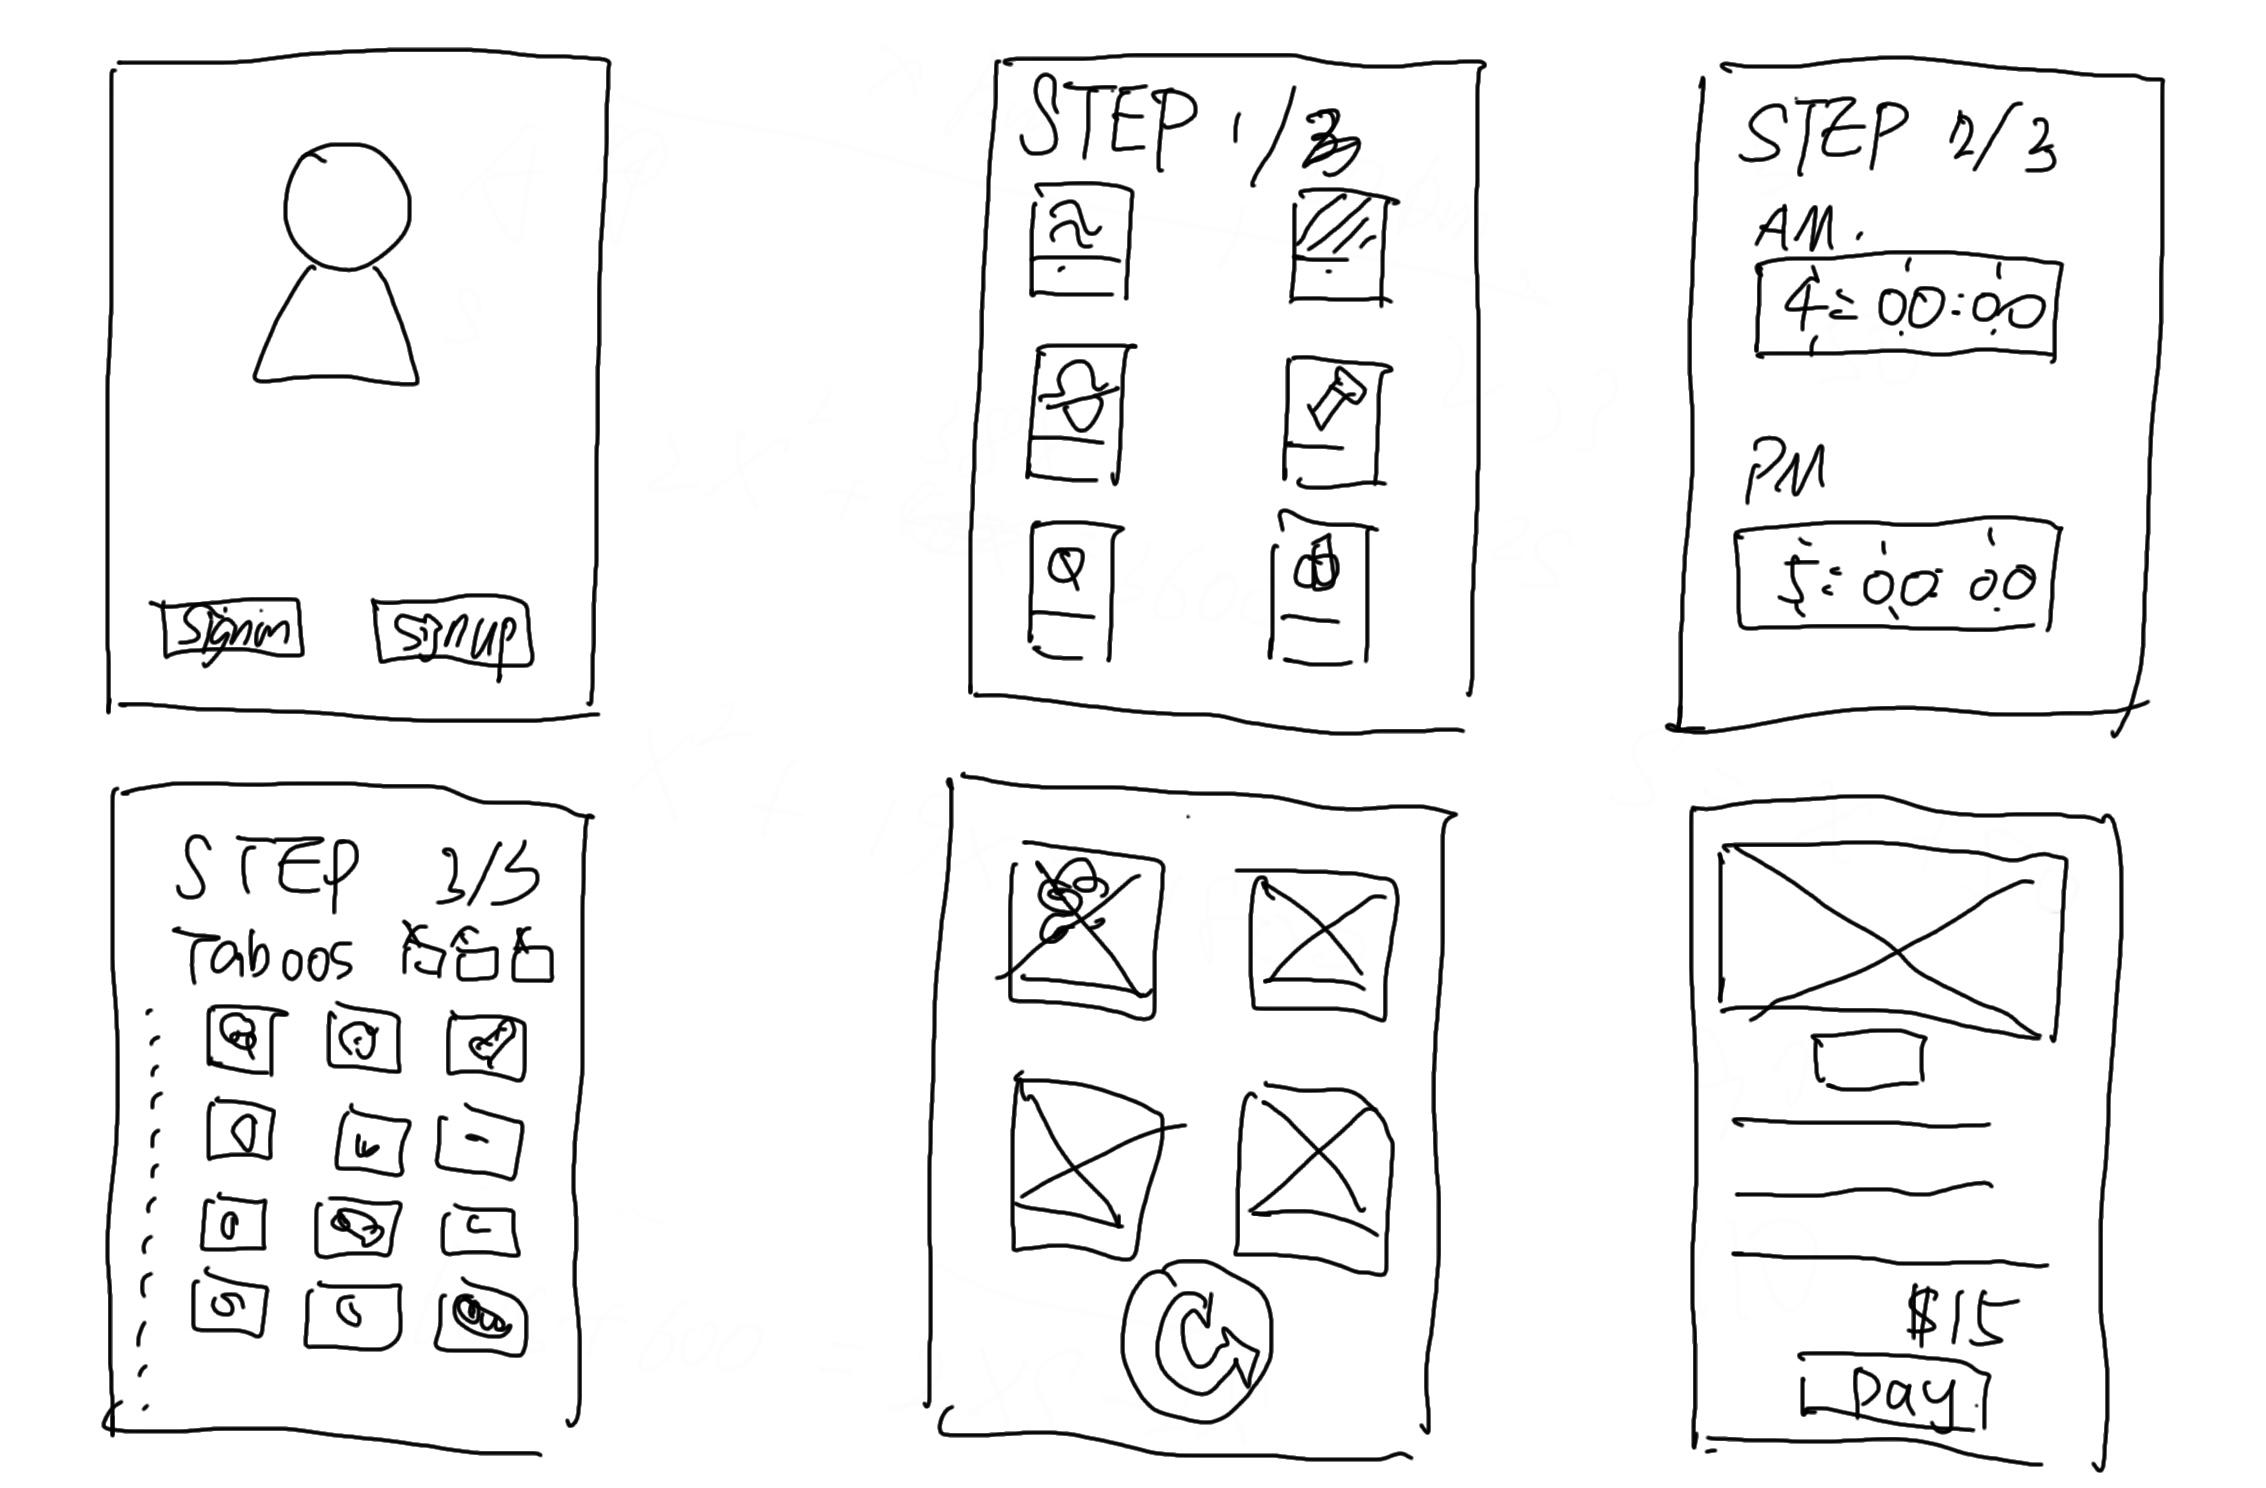 signin
signup
STEP 1/3
STEP 2/3
AM.
4:00:00
PM
5:00:00
STEP 3/3
Taboos
$15
pay